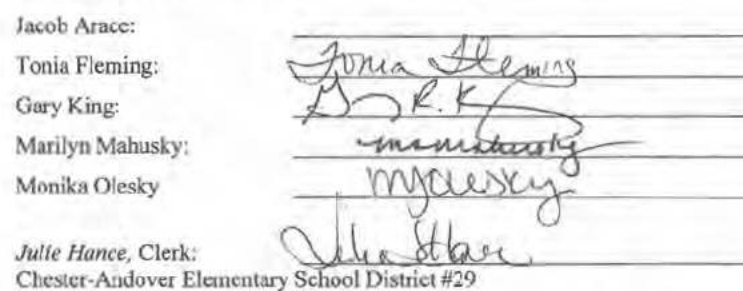 Jacob Arace:
Tonia Fleming: Tonia Fleming
Gary King: Gary R. K
Marilyn Mahusky: mamahusky
Monika Olesky MJOlesky
Julie Hance, Clerk:
Chester-Andover Elementary School District #29